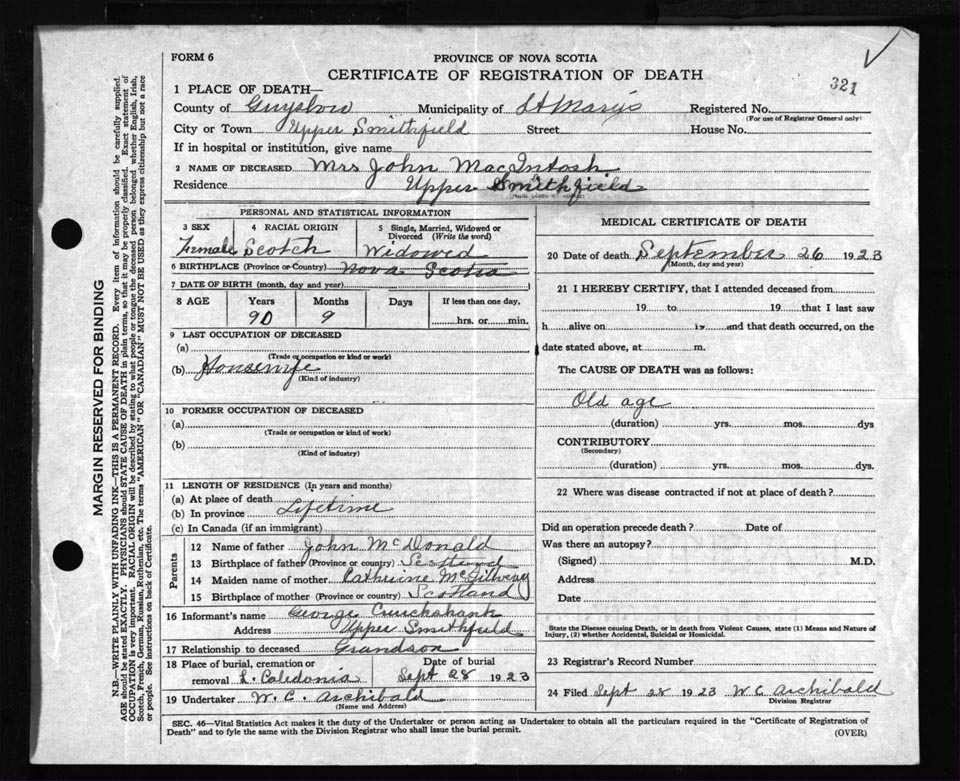 FORM 6
PROVINCE OF NOVA SCOTIA
CERTIFICATE OF REGISTRATION OF DEATH
321
1 PLACE OF DEATH—
County of Guysboro Municipality of St Mary's Registered No.
(For use of Registrar General only)
City or Town Upper Smithfield Street House No.
If in hospital or institution, give name
2 NAME OF DECEASED Mrs John MacIntosh
Residence Upper Smithfield
PERSONAL AND STATISTICAL INFORMATION
3 SEX 4 RACIAL ORIGIN 5 Single, Married, Widowed or Divorced (Write the word)
Female Scotch Widowed
6 BIRTHPLACE (Province or Country) Nova Scotia
7 DATE OF BIRTH (month, day and year)
8 AGE Years Months Days If less than one day,
90 9 hrs. or min.
9 LAST OCCUPATION OF DECEASED
(a)
(Trade or occupation or kind of work)
(b) Housewife
(Kind of industry)
10 FORMER OCCUPATION OF DECEASED
(a)
(Trade or occupation or kind of work)
(b)
(Kind of industry)
11 LENGTH OF RESIDENCE (In years and months)
(a) At place of death
(b) In province Lifetime
(c) In Canada (if an immigrant)
Parents
12 Name of father John McDonald
13 Birthplace of father (Province or country) Scotland
14 Maiden name of mother Catherine McGilvray
15 Birthplace of mother (Province or country) Scotland
16 Informant's name George Cruickshank
Address Upper Smithfield
17 Relationship to deceased Grandson
18 Place of burial, cremation or removal L. Caledonia Date of burial Sept 28 1923
19 Undertaker W. C. Archibald
(Name and Address)
MEDICAL CERTIFICATE OF DEATH
20 Date of death September 26 1923
(Month, day and year)
21 I HEREBY CERTIFY, that I attended deceased from
19 to 19 that I last saw
h alive on 19 and that death occurred, on the
date stated above, at m.
The CAUSE OF DEATH was as follows:
Old age
(duration) yrs. mos. dys
CONTRIBUTORY
(Secondary)
(duration) yrs. mos. dys.
22 Where was disease contracted if not at place of death?
Did an operation precede death? Date of
Was there an autopsy?
(Signed) M.D.
Address
Date
State the Disease causing Death, or in death from Violent Causes, state (1) Means and Nature of
Injury, (2) whether Accidental, Suicidal or Homicidal.
23 Registrar's Record Number
24 Filed Sept 28 1923 W C Archibald
Division Registrar
SEC. 46—Vital Statistics Act makes it the duty of the Undertaker or person acting as Undertaker to obtain all the particulars required in the "Certificate of Registration of
Death" and to fyle the same with the Division Registrar who shall issue the burial permit.
(OVER)
MARGIN RESERVED FOR BINDING
N.B.—WRITE PLAINLY WITH UNFADING INK—THIS IS A PERMANENT RECORD. Every item of information should be carefully supplied.
AGE should be stated EXACTLY. PHYSICIANS should STATE CAUSE OF DEATH in plain terms, so that it may be properly classified. Exact statement of
OCCUPATION is very important. RACIAL ORIGIN will be described by stating to what people or tongue the deceased person belonged whether English, Irish,
Scotch, French, German, Russian, Ruthenian, etc. The terms "AMERICAN" OR "CANADIAN" MUST NOT BE USED as they express citizenship but not a race
or people. See instructions on back of Certificate.